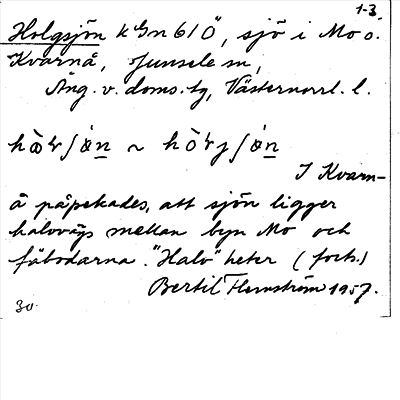 1-3
Holgsjön k Gn 61 Ö, sjö i Mo o.
Kvarnå, Junsele sn,
Ång. v. doms. tg, Västernorrl. l.
I Kvarn-
å påpekades, att sjön ligger
halovägs mellan byn Mo och
fäbodarna. "Halv" heter (forts.)
Bertil Flemström 1957.
30